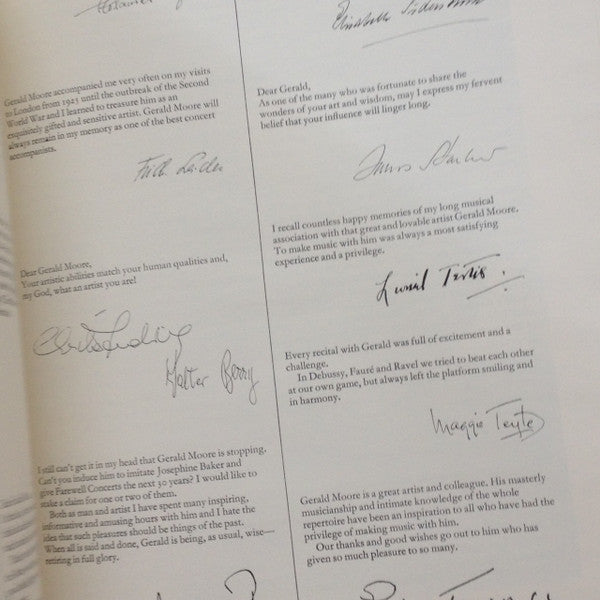 Gerald Moore accompanied me very often on my visits
to London from 1925 until the outbreak of the Second
World War and I learned to treasure him as an
exquisitely gifted and sensitive artist. Gerald Moore will
always remain in my memory as one of the best concert
accompanists.
Frida Leider
Dear Gerald Moore,
Your artistic abilities match your human qualities and,
my God, what an artist you are!
Christa Ludwig
Walter Berry
I still can't get it in my head that Gerald Moore is stopping.
Can't you induce him to imitate Josephine Baker and
give Farewell Concerts the next 30 years? I would like to
stake a claim for one or two of them.
Both as man and artist I have spent many inspiring,
informative and amusing hours with him and I hate the
idea that such pleasures should be things of the past.
When all is said and done, Gerald is being, as usual, wise—
retiring in full glory.
Elisabeth Söderström
Dear Gerald,
As one of the many who was fortunate to share the
wonders of your art and wisdom, may I express my fervent
belief that your influence will linger long.
Janos Starker
I recall countless happy memories of my long musical
association with that great and lovable artist Gerald Moore.
To make music with him was always a most satisfying
experience and a privilege.
Lionel Tertis.
Every recital with Gerald was full of excitement and a
challenge.
In Debussy, Fauré and Ravel we tried to beat each other
at our own game, but always left the platform smiling and
in harmony.
Maggie Teyte
Gerald Moore is a great artist and colleague. His masterly
musicianship and intimate knowledge of the whole
repertoire have been an inspiration to all who have had the
privilege of making music with him.
Our thanks and good wishes go out to him who has
given so much pleasure to so many.